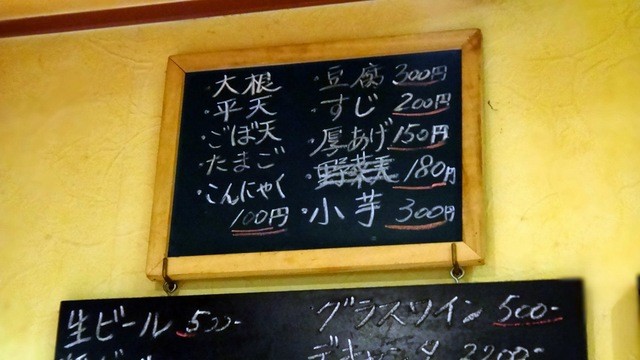 ・大根
・平天
・ごぼ天
・たまご
・こんにゃく
100円
・豆腐 300円
・すじ 200円
・厚あげ 150円
・野菜天 180円
・小芋 300円
生ビール 500-
グラスワイン 500-